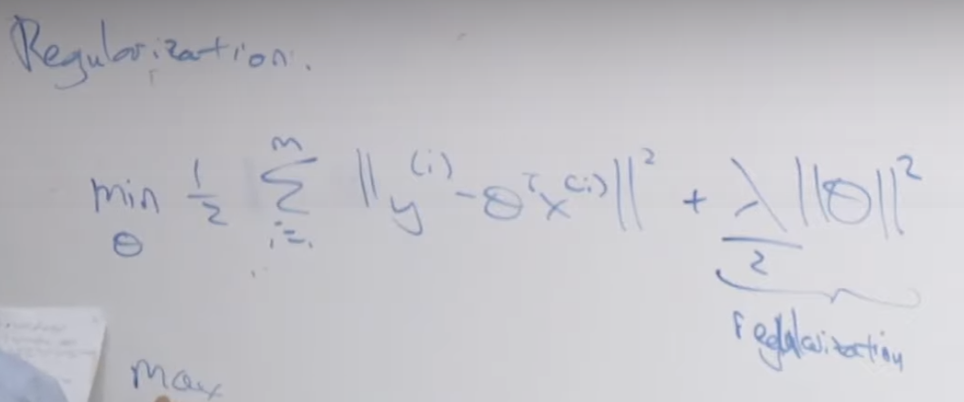 Regularization.
min θ 1/2 Σ i=1 m ||y^(i) - θ^T x^(i)||^2 + λ/2 ||θ||^2
regularization
max